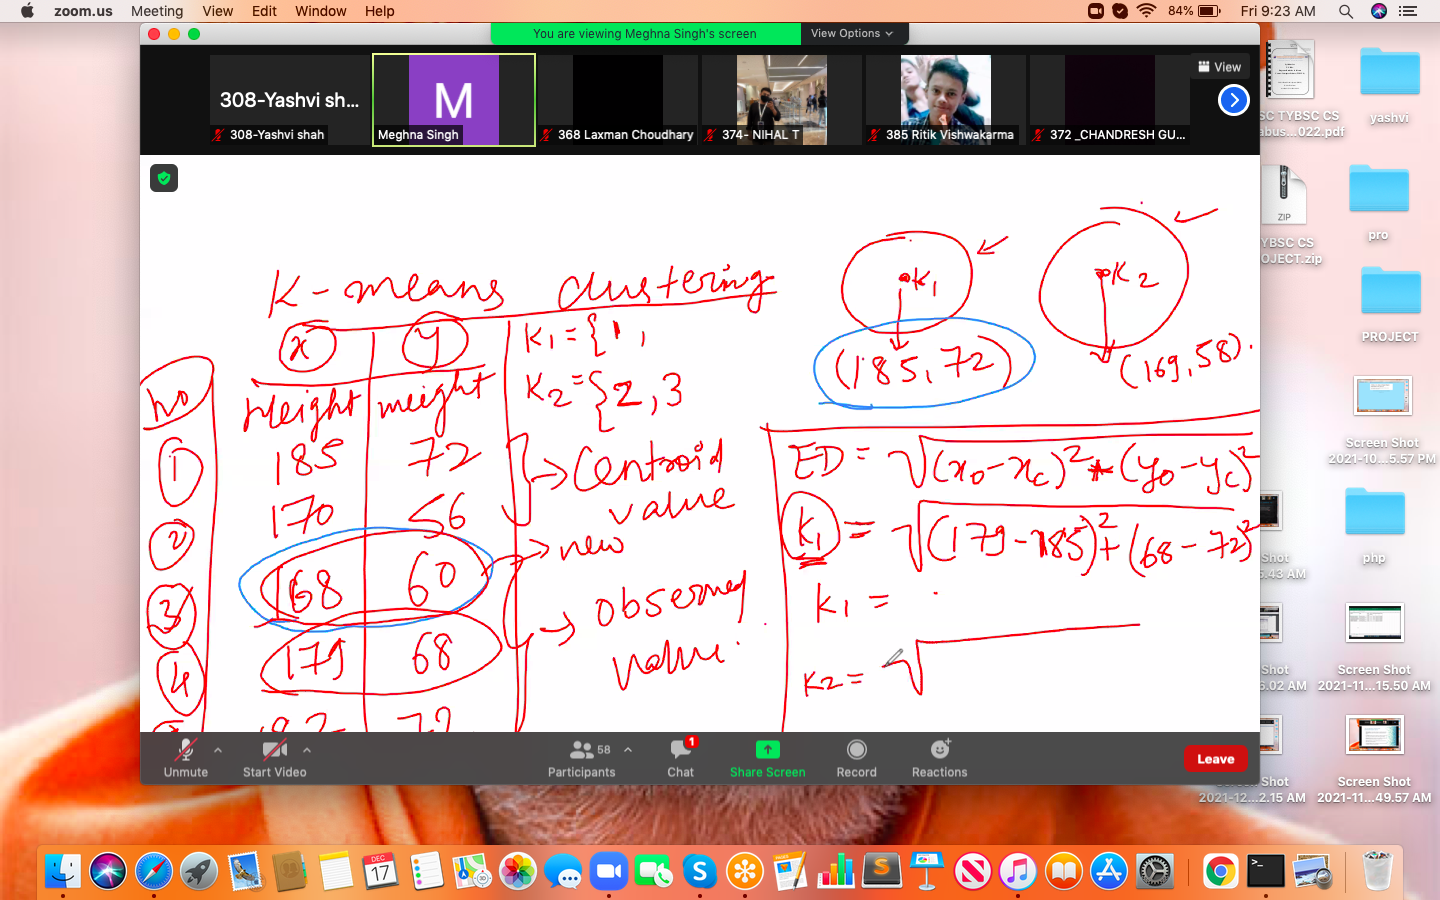 zoom.us Meeting View Edit Window Help 84% Fri 9:23 AM
You are viewing Meghna Singh's screen View Options
308-Yashvi sh...
M
View
308-Yashvi shah Meghna Singh 368 Laxman Choudhary 374- NIHAL T 385 Ritik Vishwakarma 372 _CHANDRESH GU...
K-means clustering
K1
K2
x y K1={1,
(185,72) (169,58).
K2={2,3
No Height weight
1 185 72
→ Centroid
value
2 170 56
→ new
3 168 60
→ observed
value.
4 179 68
72
ED = √(xo-xc)²+(yo-yc)²
K1 = √(179-185)²+(68-72)²
K1 = .
K2 = √
Unmute Start Video 58 Participants 1 Chat Share Screen Record Reactions Leave
SC TYBSC CS
abus...022.pdf
yashvi
ZIP
YBSC CS
OJECT.zip
pro
PROJECT
Screen Shot
2021-10...5.57 PM
Shot
5.43 AM
php
Shot
6.02 AM
Screen Shot
2021-11...15.50 AM
Shot
2021-12...2.15 AM
Screen Shot
2021-11...49.57 AM
DEC
17
S